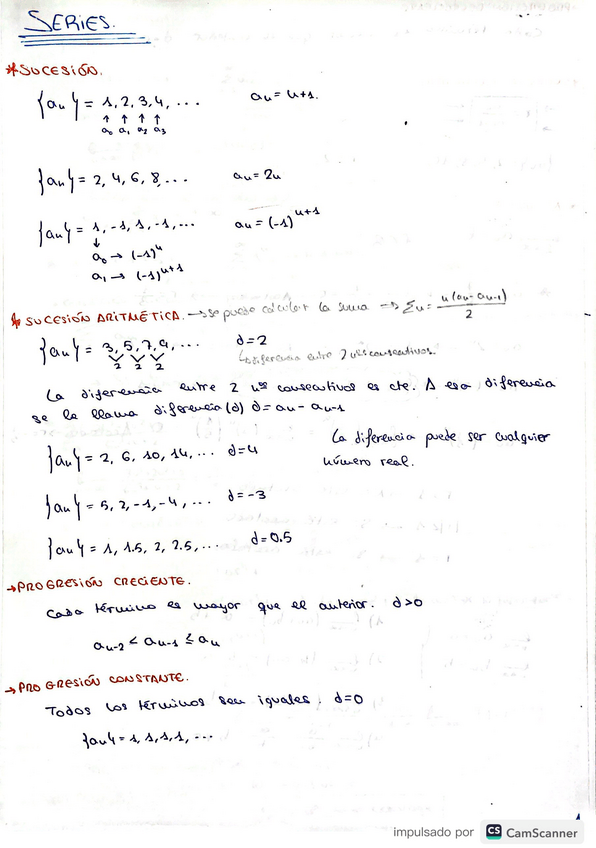 SERIES.
*SUCESIÓN.
{an} = 1, 2, 3, 4, ... an = n+1.
↑ ↑ ↑ ↑
a0 a1 a2 a3
{an} = 2, 4, 6, 8, ... an = 2n
{an} = 1, -1, 1, -1, ... an = (-1)^n+1
↓
a0 → (-1)^n
a1 → (-1)^n+1
* SUCESIÓN ARITMÉTICA. → se puede calcular la suma → Σn = n(an - an-1) / 2
{an} = 3, 5, 7, 9, ... d=2
2 2 2 ↳ diferencia entre 2 nos consecutivos.
La diferencia entre 2 nos consecutivos es cte. A esa diferencia
se la llama diferencia (d) d = an - an-1
{an} = 2, 6, 10, 14, ... d=4 La diferencia puede ser cualquier
número real.
{an} = 5, 2, -1, -4, ... d=-3
{an} = 1, 1.5, 2, 2.5, ... d=0.5
→ PROGRESIÓN CRECIENTE.
Cada término es mayor que el anterior. d>0
an-2 ≤ an-1 ≤ an
→ PROGRESIÓN CONSTANTE.
Todos los términos son iguales. d=0
{an} = 1, 1, 1, 1, ...
impulsado por CS CamScanner